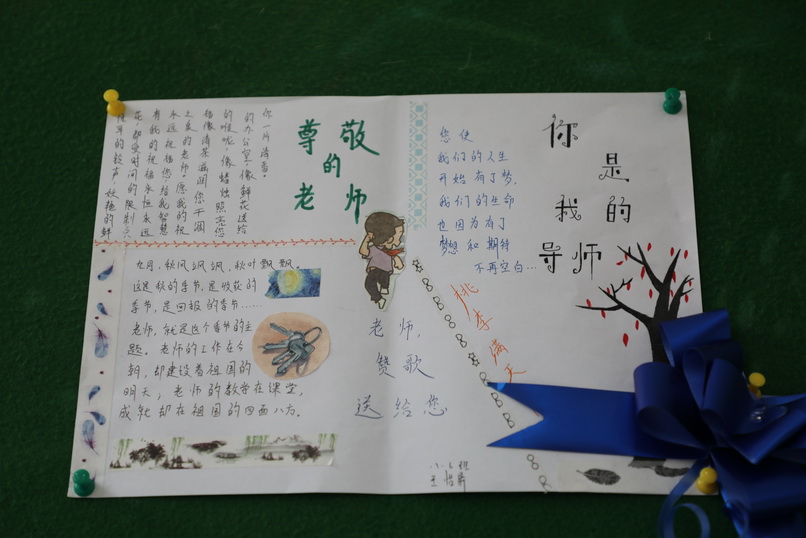 尊敬
的
老师
悦耳的铃声 妖艳的鲜
花都受时间的限制,只
有我的祝福永恒永远
永远祝福您给我智慧
之泉的老师,愿我的祝
福像清茶滋润您干涸
的喉咙,像蜡烛照亮您
的办公室,像鲜花送给
你一片清香。
九月,秋风飒飒,秋叶飘飘。
这是秋的季节,是收获的
季节,是回报的季节……
老师,就是这个季节的主
题。老师的工作在今
朝,却建设着祖国的
明天,老师的教学在课堂,
成就却在祖国的四面八方。
老师,
赞歌
送给您
您使
我们的人生
开始有了梦,
我们的生命
也因为有了
梦想和期待
不再空白…
你
是
我的
导师
桃李满天